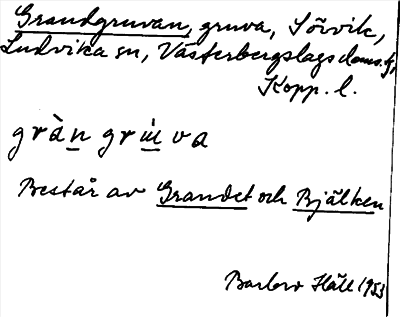 Grandgruvan, gruva, Sörvik,
Ludvika sn, Västerbergslags doms.g,
Kopp. l.
gràn grùva
Består av Grandet och Bjälken
Barbro Häll 1953